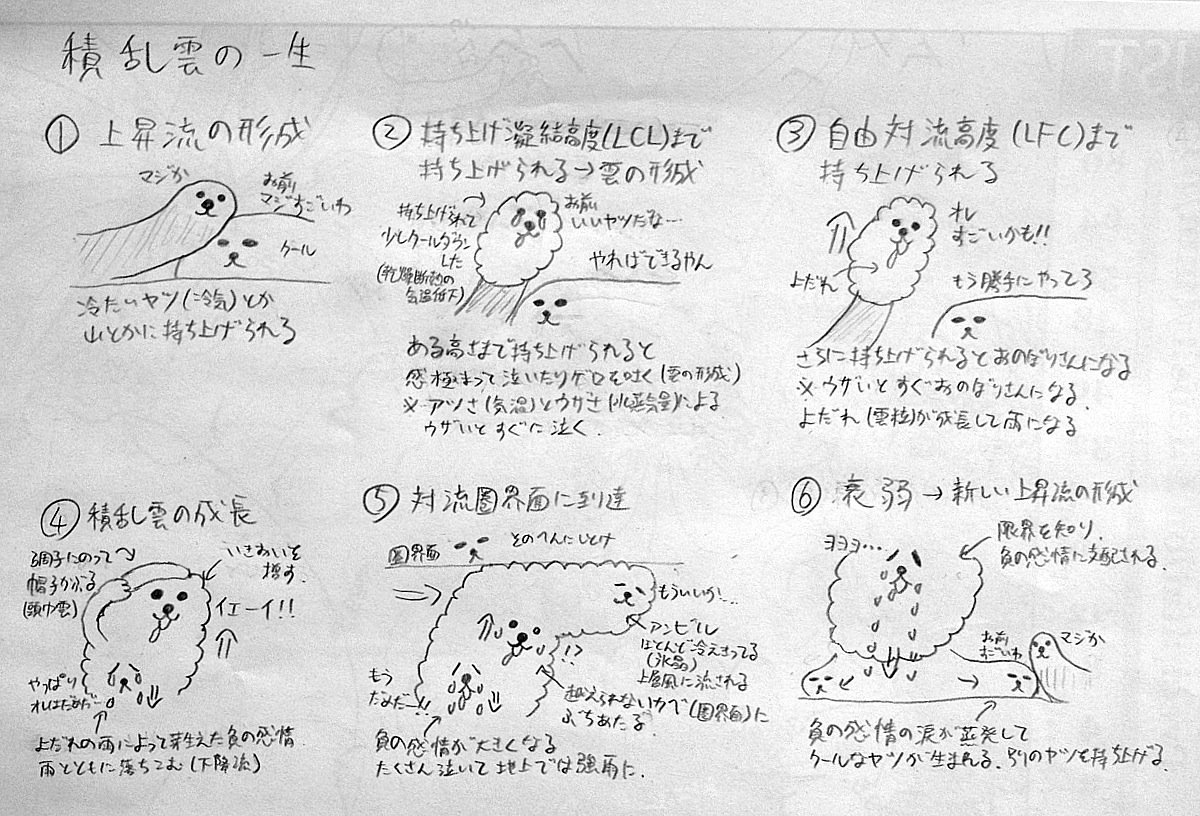 積乱雲の一生
① 上昇流の形成
マジか
お前
マジすごいわ
クール
冷たいヤツ(冷気)とか
山とかに持ち上げられる
② 持ち上げ凝結高度(LCL)まで
持ち上げられる→雲の形成
持ち上げられて
少しクールダウン
した
(乾燥断熱の
気温低下)
お前
いいヤツだな…
やればできるやん
ある高さまで持ち上げられると
感極まって泣いたりゲロを吐く(雲の形成)
※アツさ(気温)とウザさ(水蒸気量)による
ウザいとすぐに泣く.
③ 自由対流高度(LFC)まで
持ち上げられる
オレ
すごいかも!!
よだれ
もう勝手にやってろ
さらに持ち上げられるとおのぼりさんになる
※ウザいとすぐおのぼりさんになる.
よだれ(雲粒)が成長して雨になる
④ 積乱雲の成長
調子にのって
帽子かぶる
(頭巾雲)
いきおいを
増す.
イエーイ!!
やっぱり
オレはだめだ…
よだれの雨によって芽生えた負の感情
雨とともに落ちこむ(下降流)
⑤ 対流圏界面に到達
圏界面
そのへんにしとけ
もういいか…
アンビル
ほとんど冷えきってる
(氷晶)
上層風に流される
!?
もう
だめだー!!
越えられないカベ(圏界面)に
ぶちあたる
負の感情が大きくなる
たくさん泣いて地上では強雨に.
⑥ 衰弱→新しい上昇流の形成
ヨヨヨ…
限界を知り,
負の感情に支配される.
お前
すごいわ
マジか
負の感情の涙が蒸発して
クールなヤツが生まれる.別のヤツを持ち上げる.